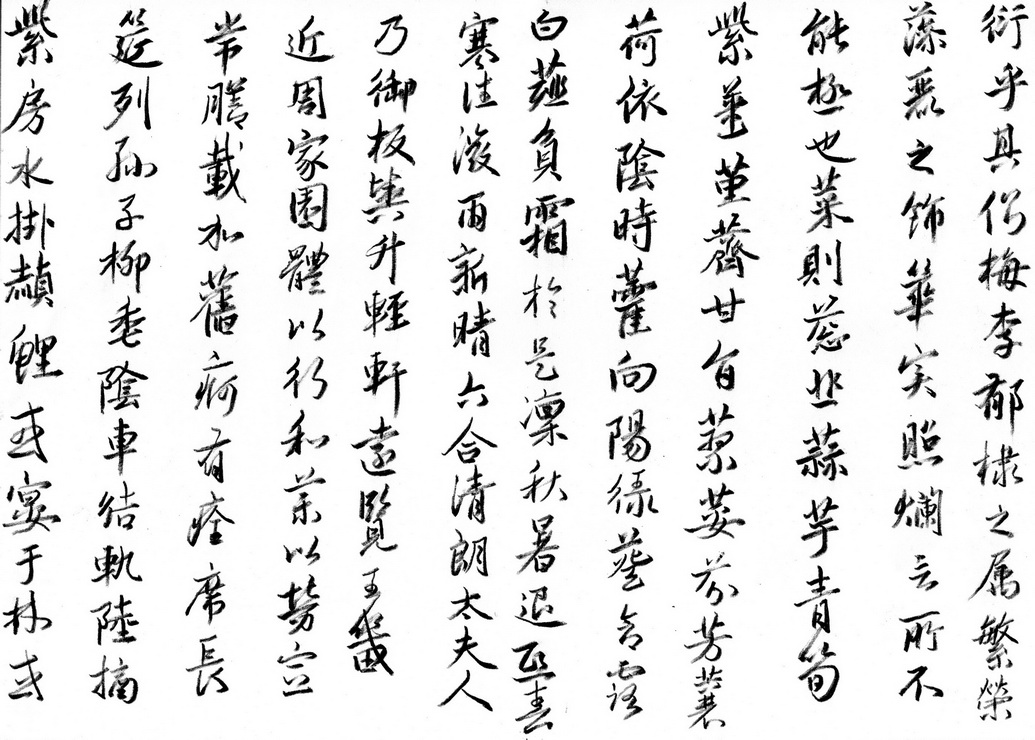 衍乎其側梅李郁棣之属繁榮
藻麗之飾華实照爛言所不
能極也菜則蔥韭蒜芋青筍
紫薑堇薺甘旨蓼荽芬芳蘘
荷依陰時藿向陽綠葵含露
白薤負霜於是凜秋暑退熙春
寒往微雨新晴六合清朗太夫人
乃御板輿升輕軒遠覽王畿
近周家園體以行和藥以勞宣
常膳載加舊痾有痊席長
筵列孫子柳垂陰車結軌陸摘
紫房水掛赬鯉或宴于林或